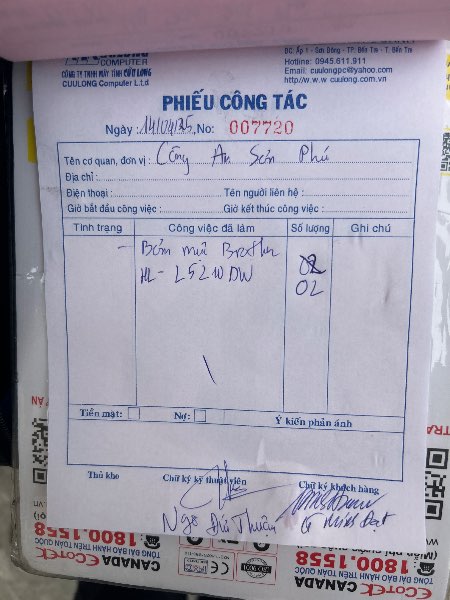 COMPUTER
CÔNG TY TNHH MÁY TÍNH CỬU LONG
CUULONG Computer L.t.d
ĐC: Ấp 1 - Sơn Đông - TP. Bến Tre - T. Bến Tre
Hotline: 0945.611.911
Email: cuulongpc@yahoo.com
http://www.cuulong.com.vn
PHIẾU CÔNG TÁC
Ngày: 14/04/25, No: 007720
Tên cơ quan, đơn vị: Công An Sơn Phú
Địa chỉ:
Điện thoại: Tên người liên hệ:
Giờ bắt đầu công việc: Giờ kết thúc công việc:
Tình trạng Công việc đã làm Số lượng Ghi chú
- Bơm mực Brother
HL - L5210DW 02
02
Tiền mặt: Nợ: Ý kiến phản ánh
Thủ kho Chữ ký kỹ thuật viên Chữ ký khách hàng
Ngô Đức Thuận
1800.1558
TỔNG ĐÀI BÁO HÀNH TRÊN TOÀN QUỐC
CANADA
ECOTEK
1800.1558
CANADA
ECOTEK